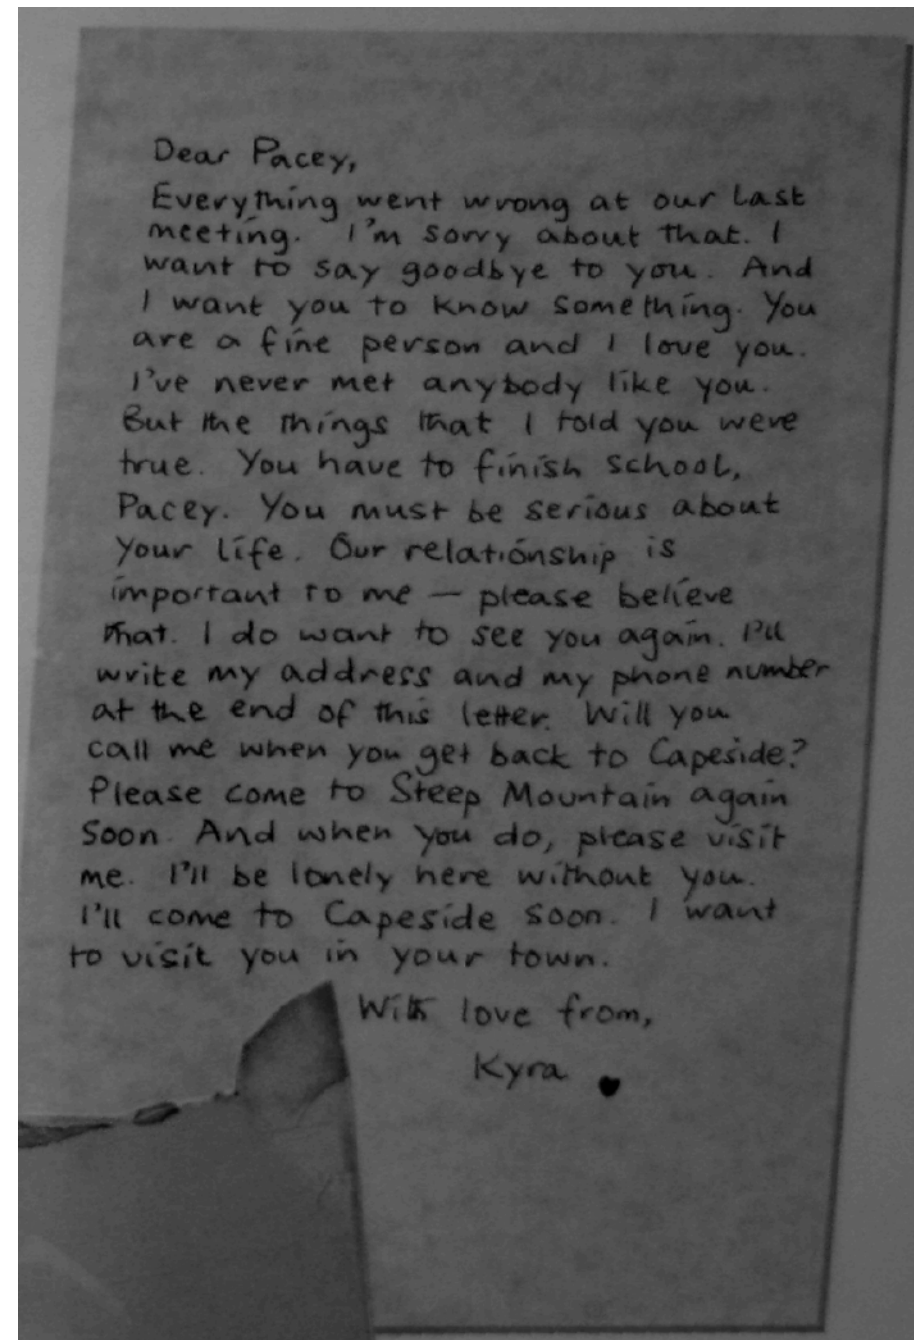 Dear Pacey,
Everything went wrong at our last
meeting. I'm sorry about that. I
want to say goodbye to you. And
I want you to know something. You
are a fine person and I love you.
I've never met anybody like you.
But the things that I told you were
true. You have to finish school,
Pacey. You must be serious about
your life. Our relationship is
important to me – please believe
that. I do want to see you again. I'll
write my address and my phone number
at the end of this letter. Will you
call me when you get back to Capeside?
Please come to Steep Mountain again
soon. And when you do, please visit
me. I'll be lonely here without you.
I'll come to Capeside soon. I want
to visit you in your town.
With love from,
Kyra